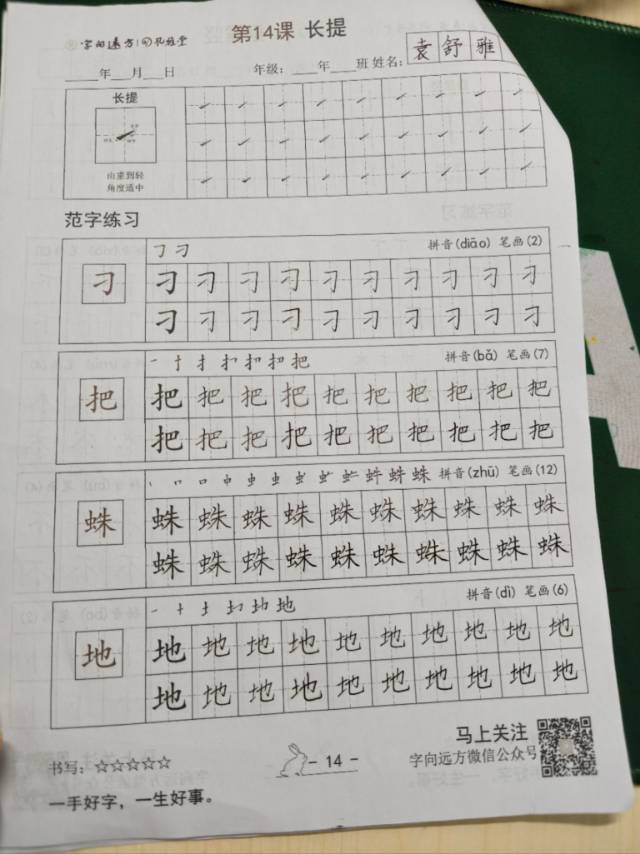 第14课 长提
____年___月___日 年级：____年____班 姓名：袁舒雅
长提
由重到轻
角度适中
范字练习
拼音(diāo) 笔画(2)
刁
刁刁刁刁刁刁刁刁刁刁
刁刁刁刁刁刁刁刁刁刁
拼音(bǎ) 笔画(7)
把
把把把把把把把把把把
把把把把把把把把把把
拼音(zhū) 笔画(12)
蛛
蛛蛛蛛蛛蛛蛛蛛蛛蛛蛛
蛛蛛蛛蛛蛛蛛蛛蛛蛛蛛
拼音(dì) 笔画(6)
地
地地地地地地地地地地
地地地地地地地地地地
马上关注
书写：☆☆☆☆☆ - 14 - 字向远方微信公众号
一手好字，一生好事。